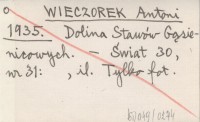 WIECZOREK Antoni
1935. Dolina Stawów Gąsie-
nicowych. – Świat 30,
nr 31: , il. Tylko fot.